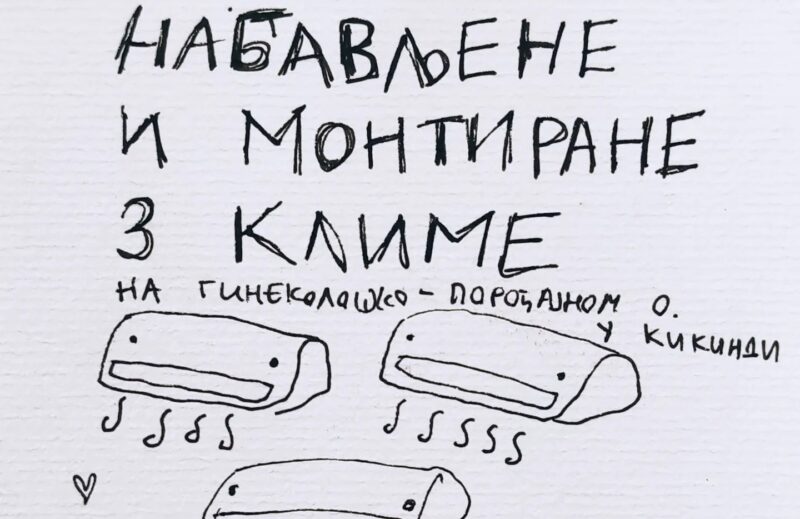 НАБАВЉЕНЕ
И МОНТИРАНЕ
3 КЛИМЕ
НА ГИНЕКОЛАШКО - ПОРОЂАЈНОМ О.
У КИКИНДИ